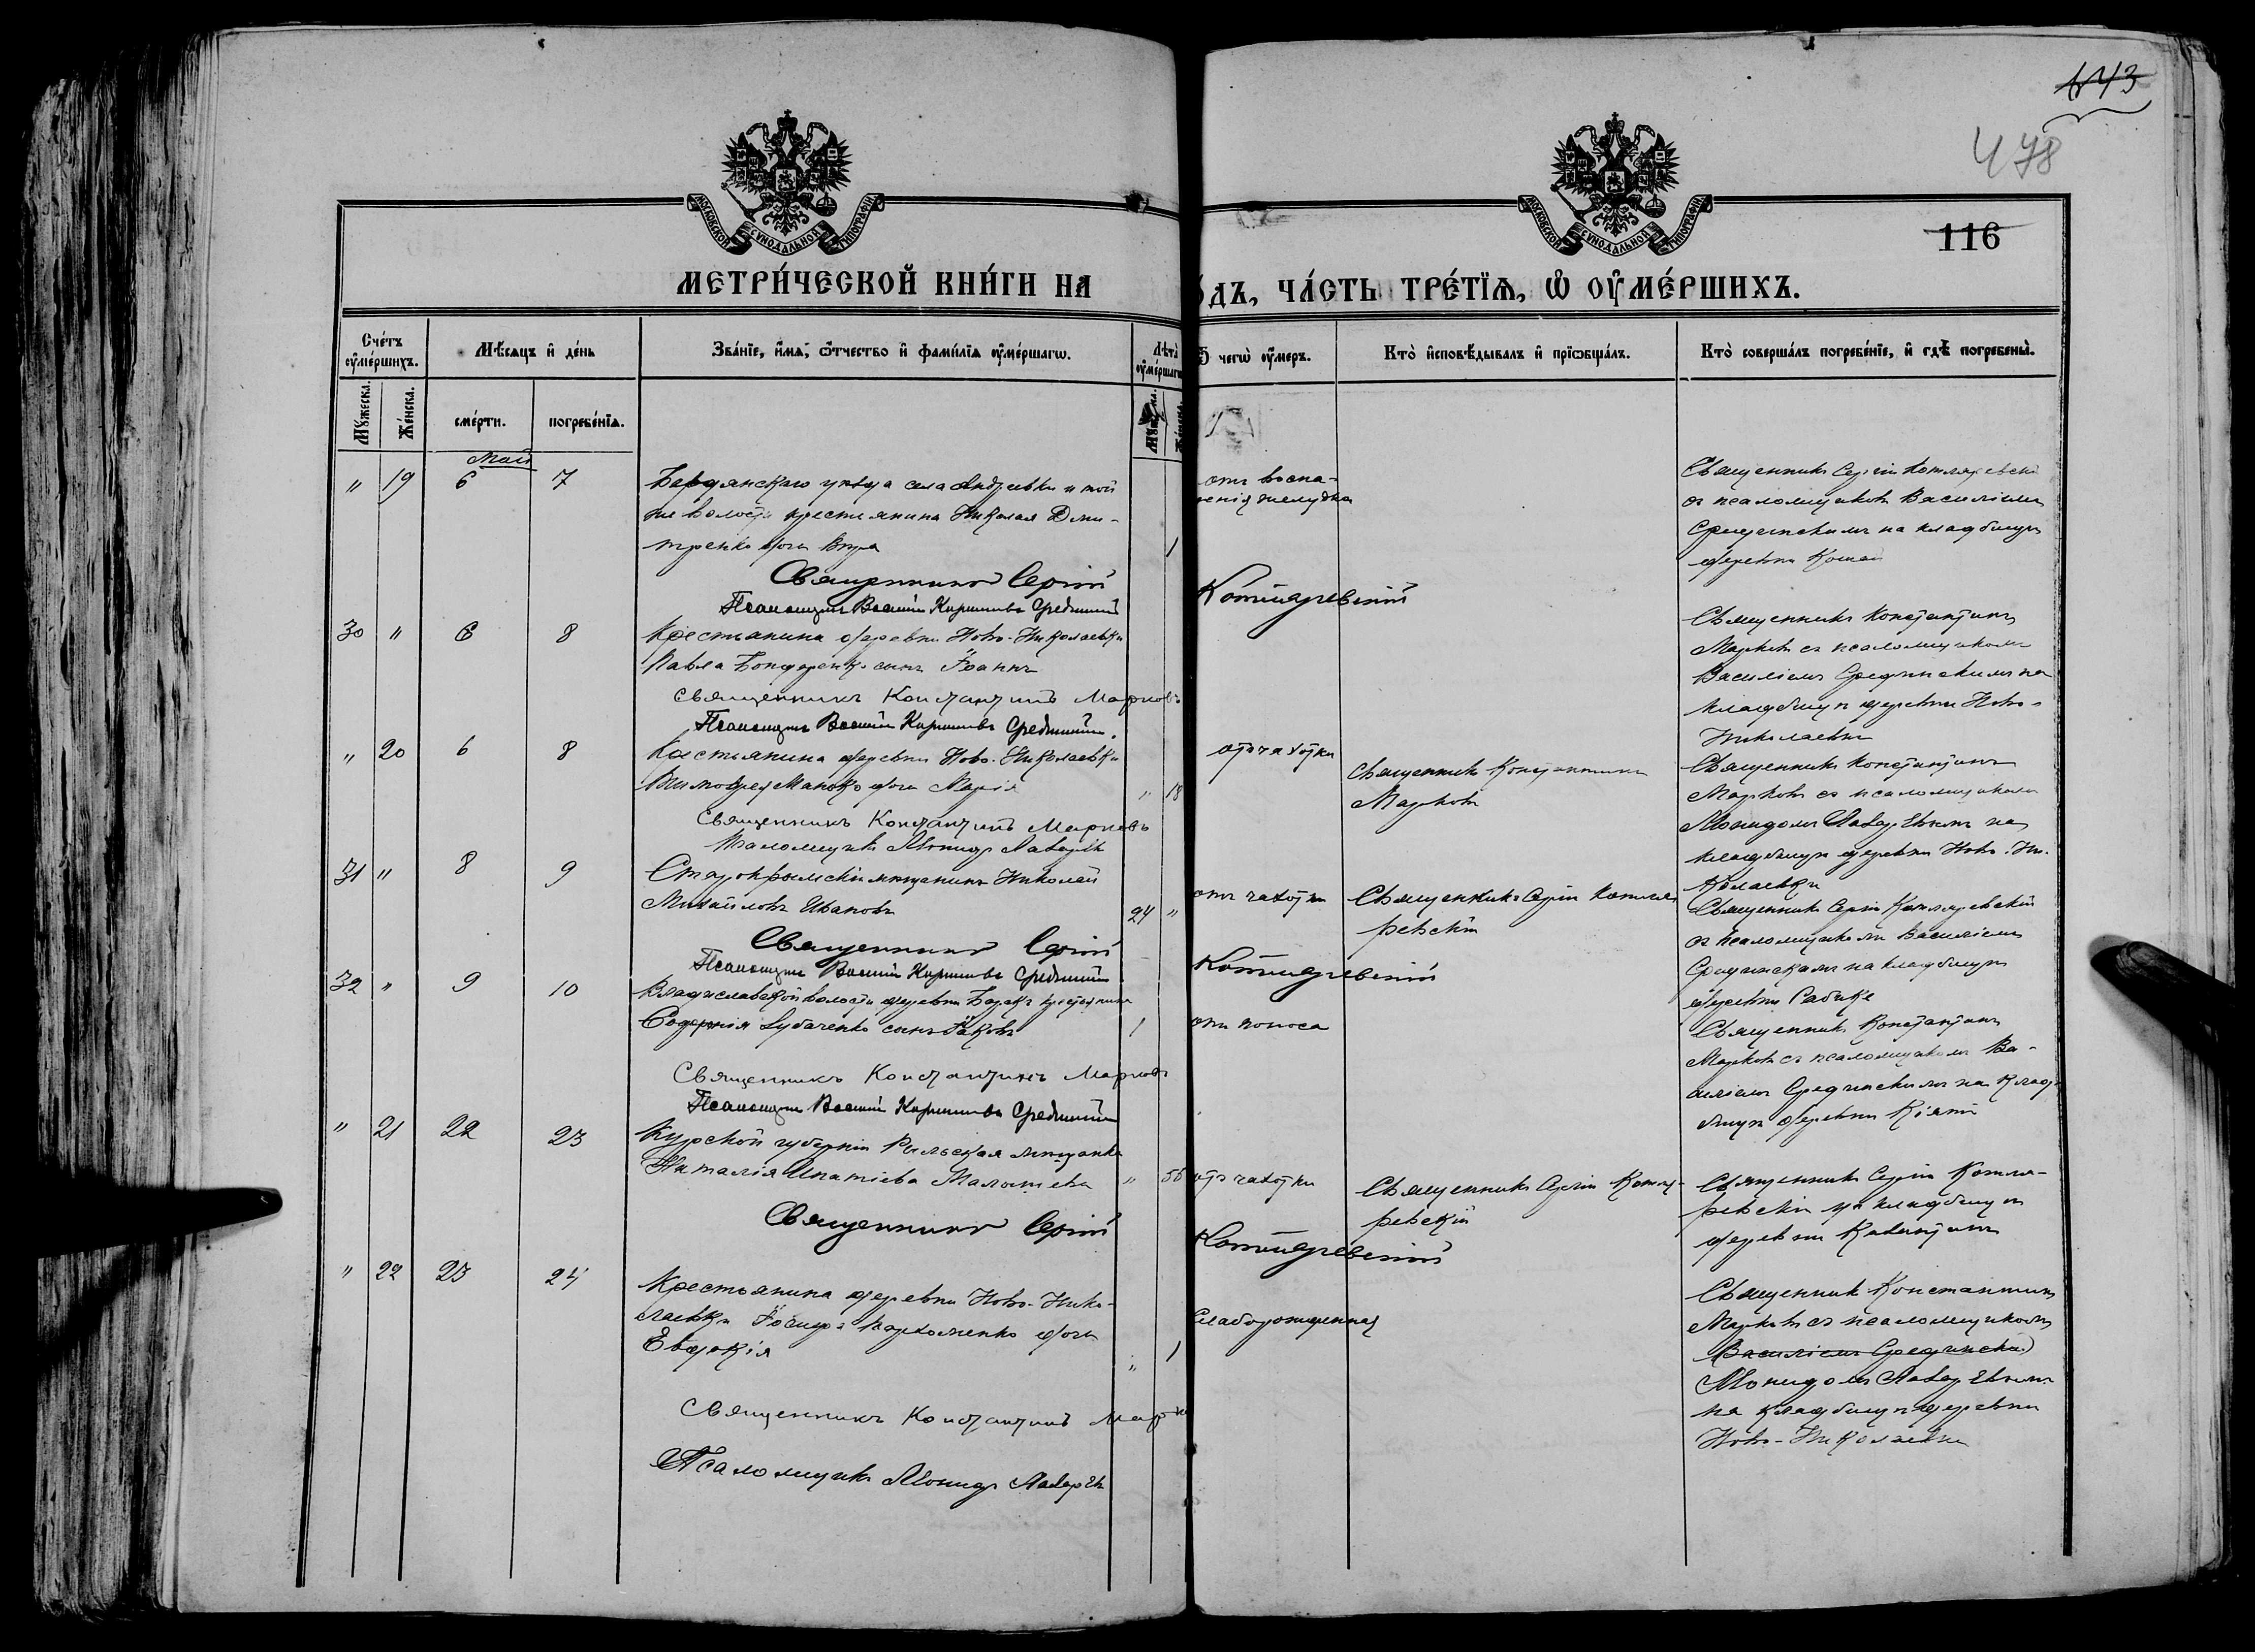 143
478
МОСКОВСКОЙ СѴНОДАЛЬНОЙ ТИПОГРАФІИ
МОСКОВСКОЙ СѴНОДАЛЬНОЙ ТИПОГРАФІИ
116
МЕТРИ́ЧЕСКОЙ КНИ́ГИ НА
ѻ́ДЪ, ЧА́СТЬ ТРЕ́ТЇѦ, Ѡ҆ ОУ҆МЕ́РШИХЪ.
Сче́тъ оу҆ме́ршихъ.
Мѣ́сѧцъ и҆ де́нь
Зва́нїе, и҆́мѧ, ѻ҆́тчество и҆ фами́лїѧ оу҆ме́ршагѡ.
Лѣта̀ оу҆ме́ршагѡ
Ѿ чегѡ̀ оу҆́меръ.
Кто̀ и҆сповѣ́дывалъ и҆ прїѡбща́лъ.
Кто̀ соверша́лъ погребе́нїе, и҆ гдѣ̀ погребены̀.
Мꙋ́жеска.
Же́нска.
сме́рти.
погребе́нїѧ.
Май
" 19 6 7
Бердянскаго уѣзда села Андреевки и той
же волости крестьянина Николая Дми-
тренко дочь Вѣра
1
отъ воспа-
ленія желудка
Священникъ Сергій Котляревскій
съ псаломщикомъ Василіемъ
Срединскимъ на кладбищѣ
деревни
Священникъ Сергій Котляревскій
Псаломщикъ Василій Срединскій
30 " 6 8
Крестьянина деревни Ново-Николаевки
Павла Бондаренко сынъ Іоаннъ
Священникъ Константинъ
Марковъ съ псаломщикомъ
Василіемъ Срединскимъ на
кладбищѣ деревни Ново-
Николаевки
Священникъ Константинъ Марковъ
Псаломщикъ Василій Срединскій
" 20 6 8
Крестьянина деревни Ново-Николаевки
дочь Марія
" 18
отъ чахотки
Священникъ Константинъ
Марковъ
Священникъ Константинъ
Марковъ съ псаломщикомъ
Леонидомъ на
кладбищѣ деревни Ново-Ни-
колаевки
Священникъ Константинъ Марковъ
Псаломщикъ Леонидъ
31 " 8 9
Старокрымскій мѣщанинъ Николай
Михайловъ Ивановъ
24 "
отъ чахотки
Священникъ Сергій Котля-
ревскій
Священникъ Сергій Котляревскій
съ псаломщикомъ Василіемъ
Срединскимъ на кладбищѣ
деревни
Священникъ Сергій Котляревскій
Псаломщикъ Василій Срединскій
32 " 9 10
Владиславской волости деревни крестьянина
сынъ Іаковъ
1
отъ поноса
Священникъ Константинъ
Марковъ съ псаломщикомъ Ва-
силіемъ Срединскимъ на клад-
бищѣ деревни Кіятъ
Священникъ Константинъ Марковъ
Псаломщикъ Василій Срединскій
" 21 22 23
Курской губерніи Рыльская мѣщанка
Наталія Игнатіева
" 55
отъ чахотки
Священникъ Сергій Котля-
ревскій
Священникъ Сергій Котля-
ревскій на кладбищѣ
деревни
Священникъ Сергій Котляревскій
" 22 23 24
Крестьянина деревни Ново-Нико-
лаевки Пархоменко дочь
Евдокія
" 1
Слаборожденная
Священникъ Константинъ
Марковъ съ псаломщикомъ
Василіемъ Срединскимъ
Леонидомъ
на кладбищѣ деревни
Ново-Николаевки
Священникъ Константинъ Марковъ
Псаломщикъ Леонидъ